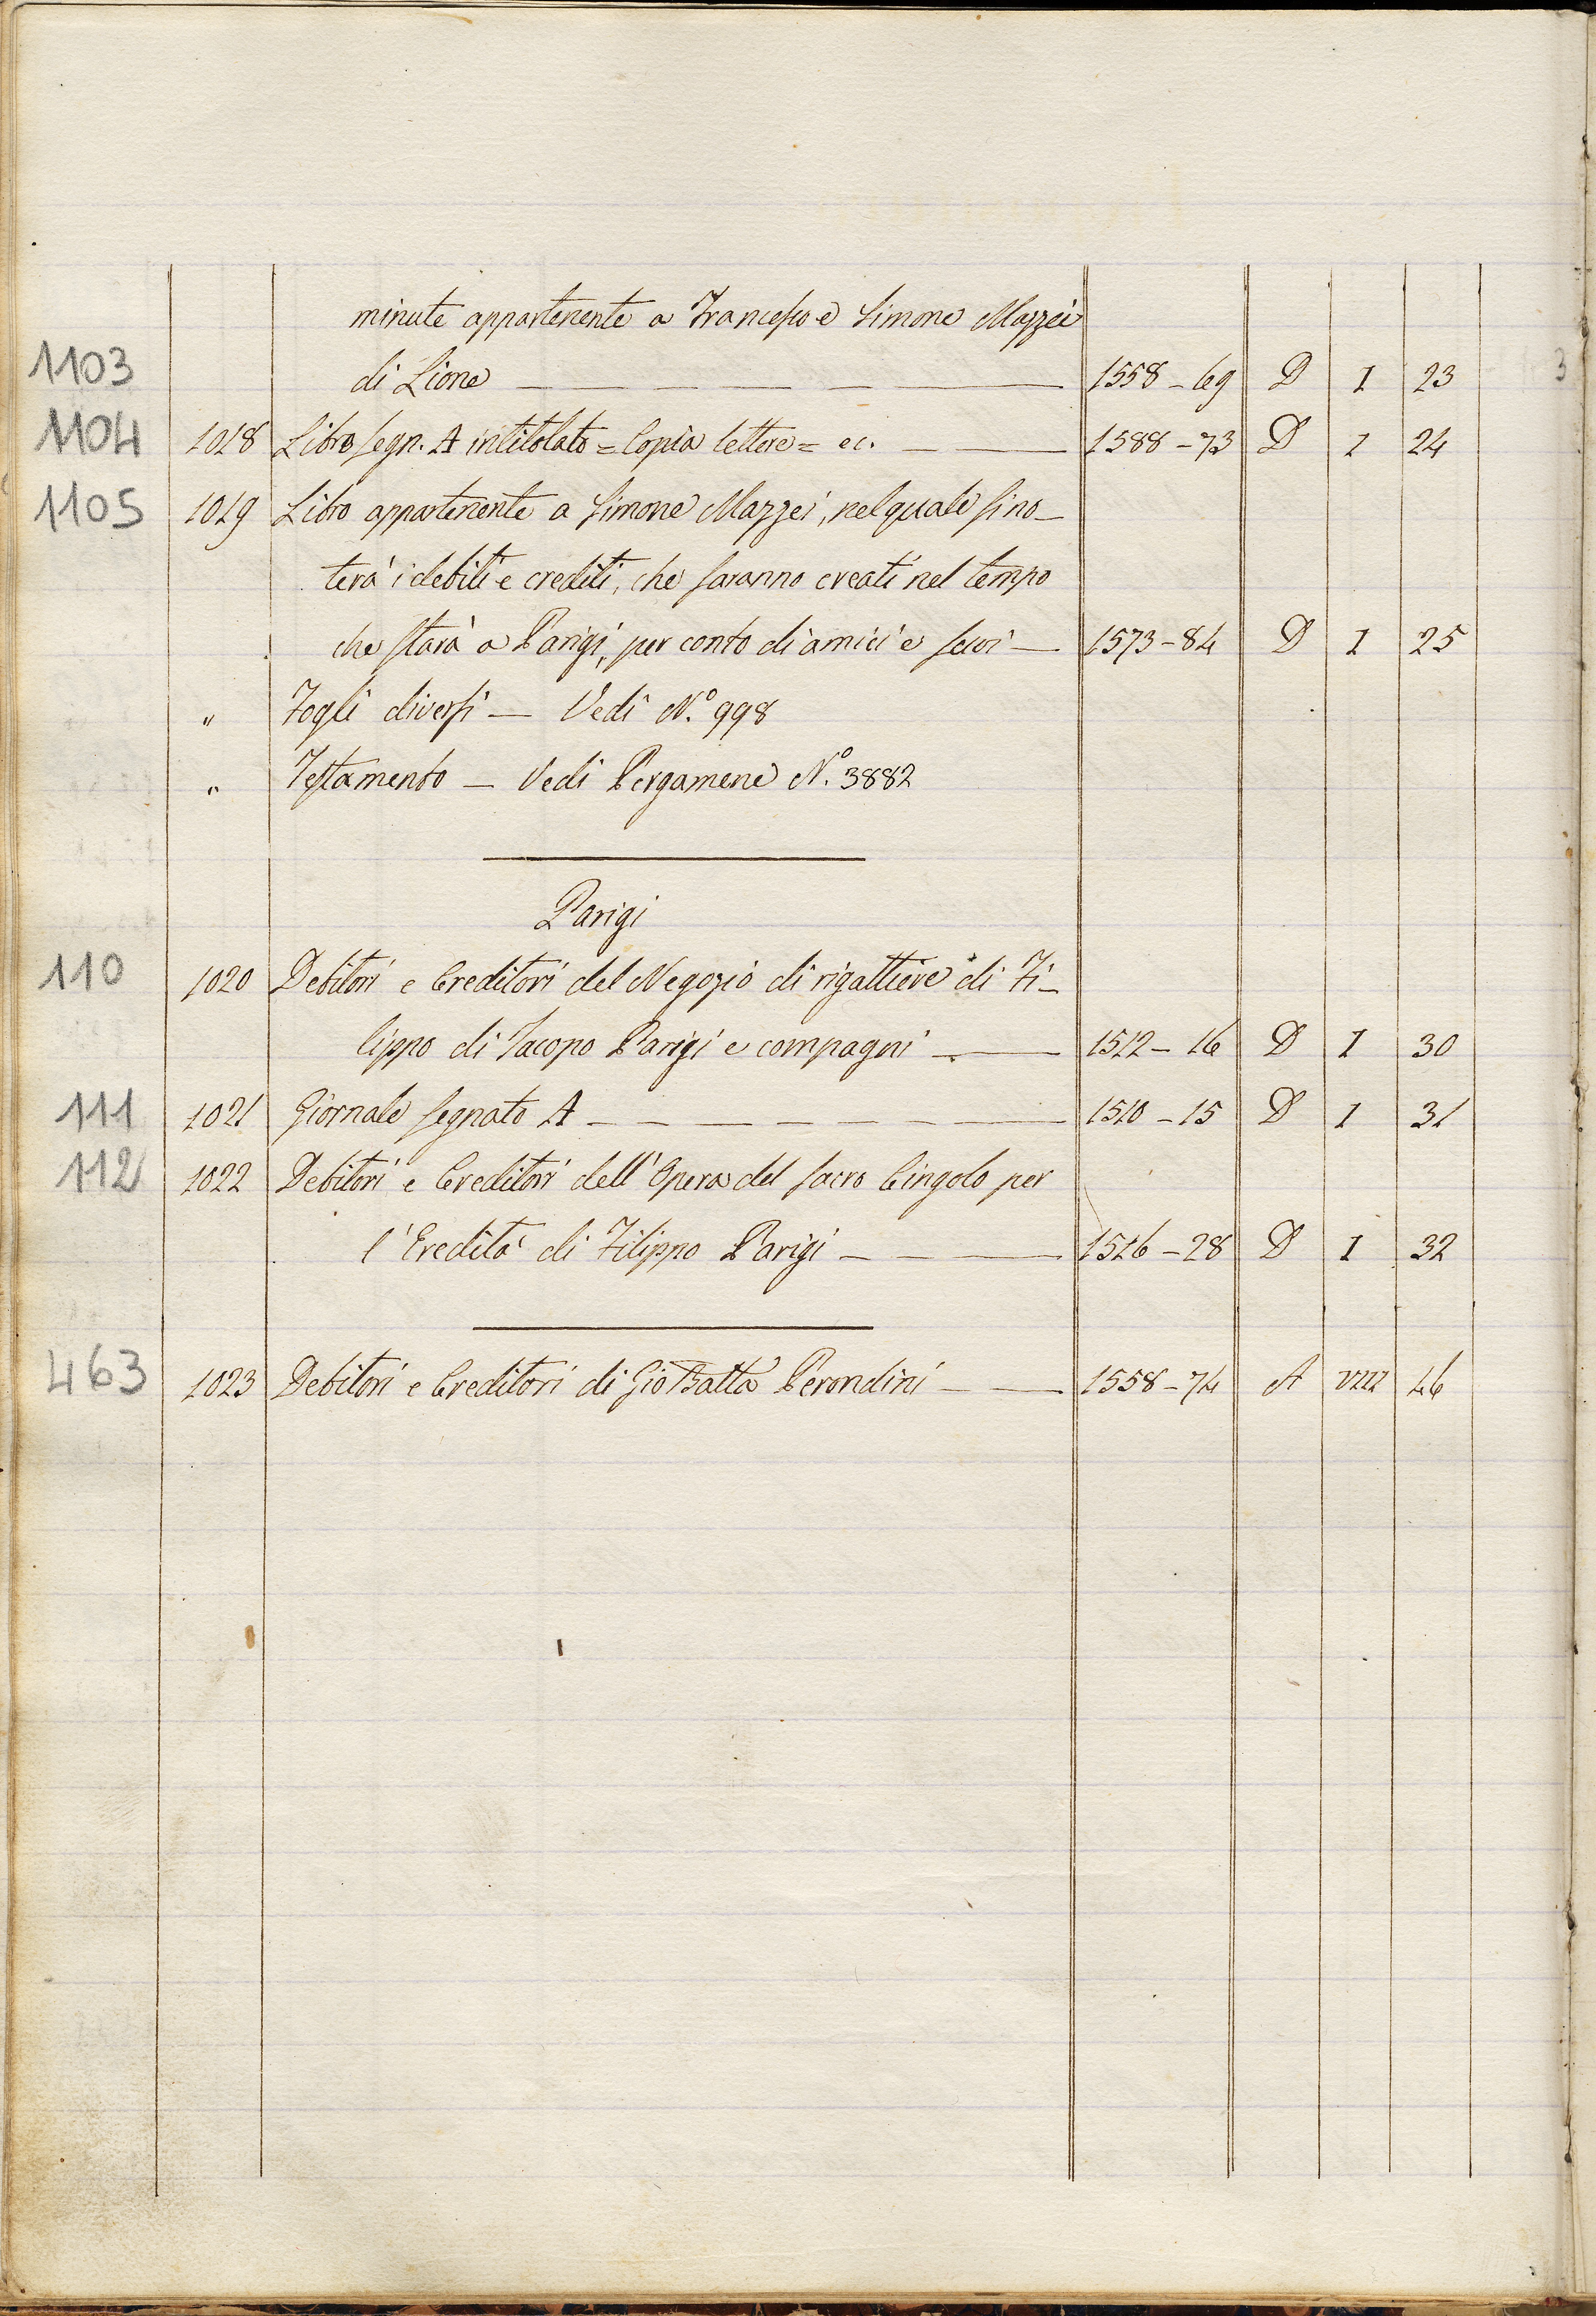 minute appartenente a Francesco e Simone Mazzei
1103 di Lione — — — — — — 1558-69 D I 23
1104 1018 Libro segn. A intitolato = Copia lettere = ec. — — 1588-73 D I 24
1105 1019 Libro appartenente a Simone Mazzei, nel quale si no-
terà i debiti e crediti, che saranno creati nel tempo
che starà a Parigi, per conto di amici e suoi — 1573-84 D I 25
" Fogli diversi — Vedi N.° 998
" Testamento — Vedi Pergamene N.° 3882
Parigi
110 1020 Debitori e Creditori del Negozio di rigattiere di Fi-
lippo di Jacopo Parigi e compagni — — 1512-16 D I 30
111 1021 Giornale segnato A — — — — — — — — 1510-15 D I 31
112 1022 Debitori e Creditori dell'Opera del Sacro Cingolo per
l'Eredità di Filippo Parigi — — — — 1526-28 D I 32
463 1023 Debitori e Creditori di Gio Batta Perondini — — 1558-74 A VIII 46
3